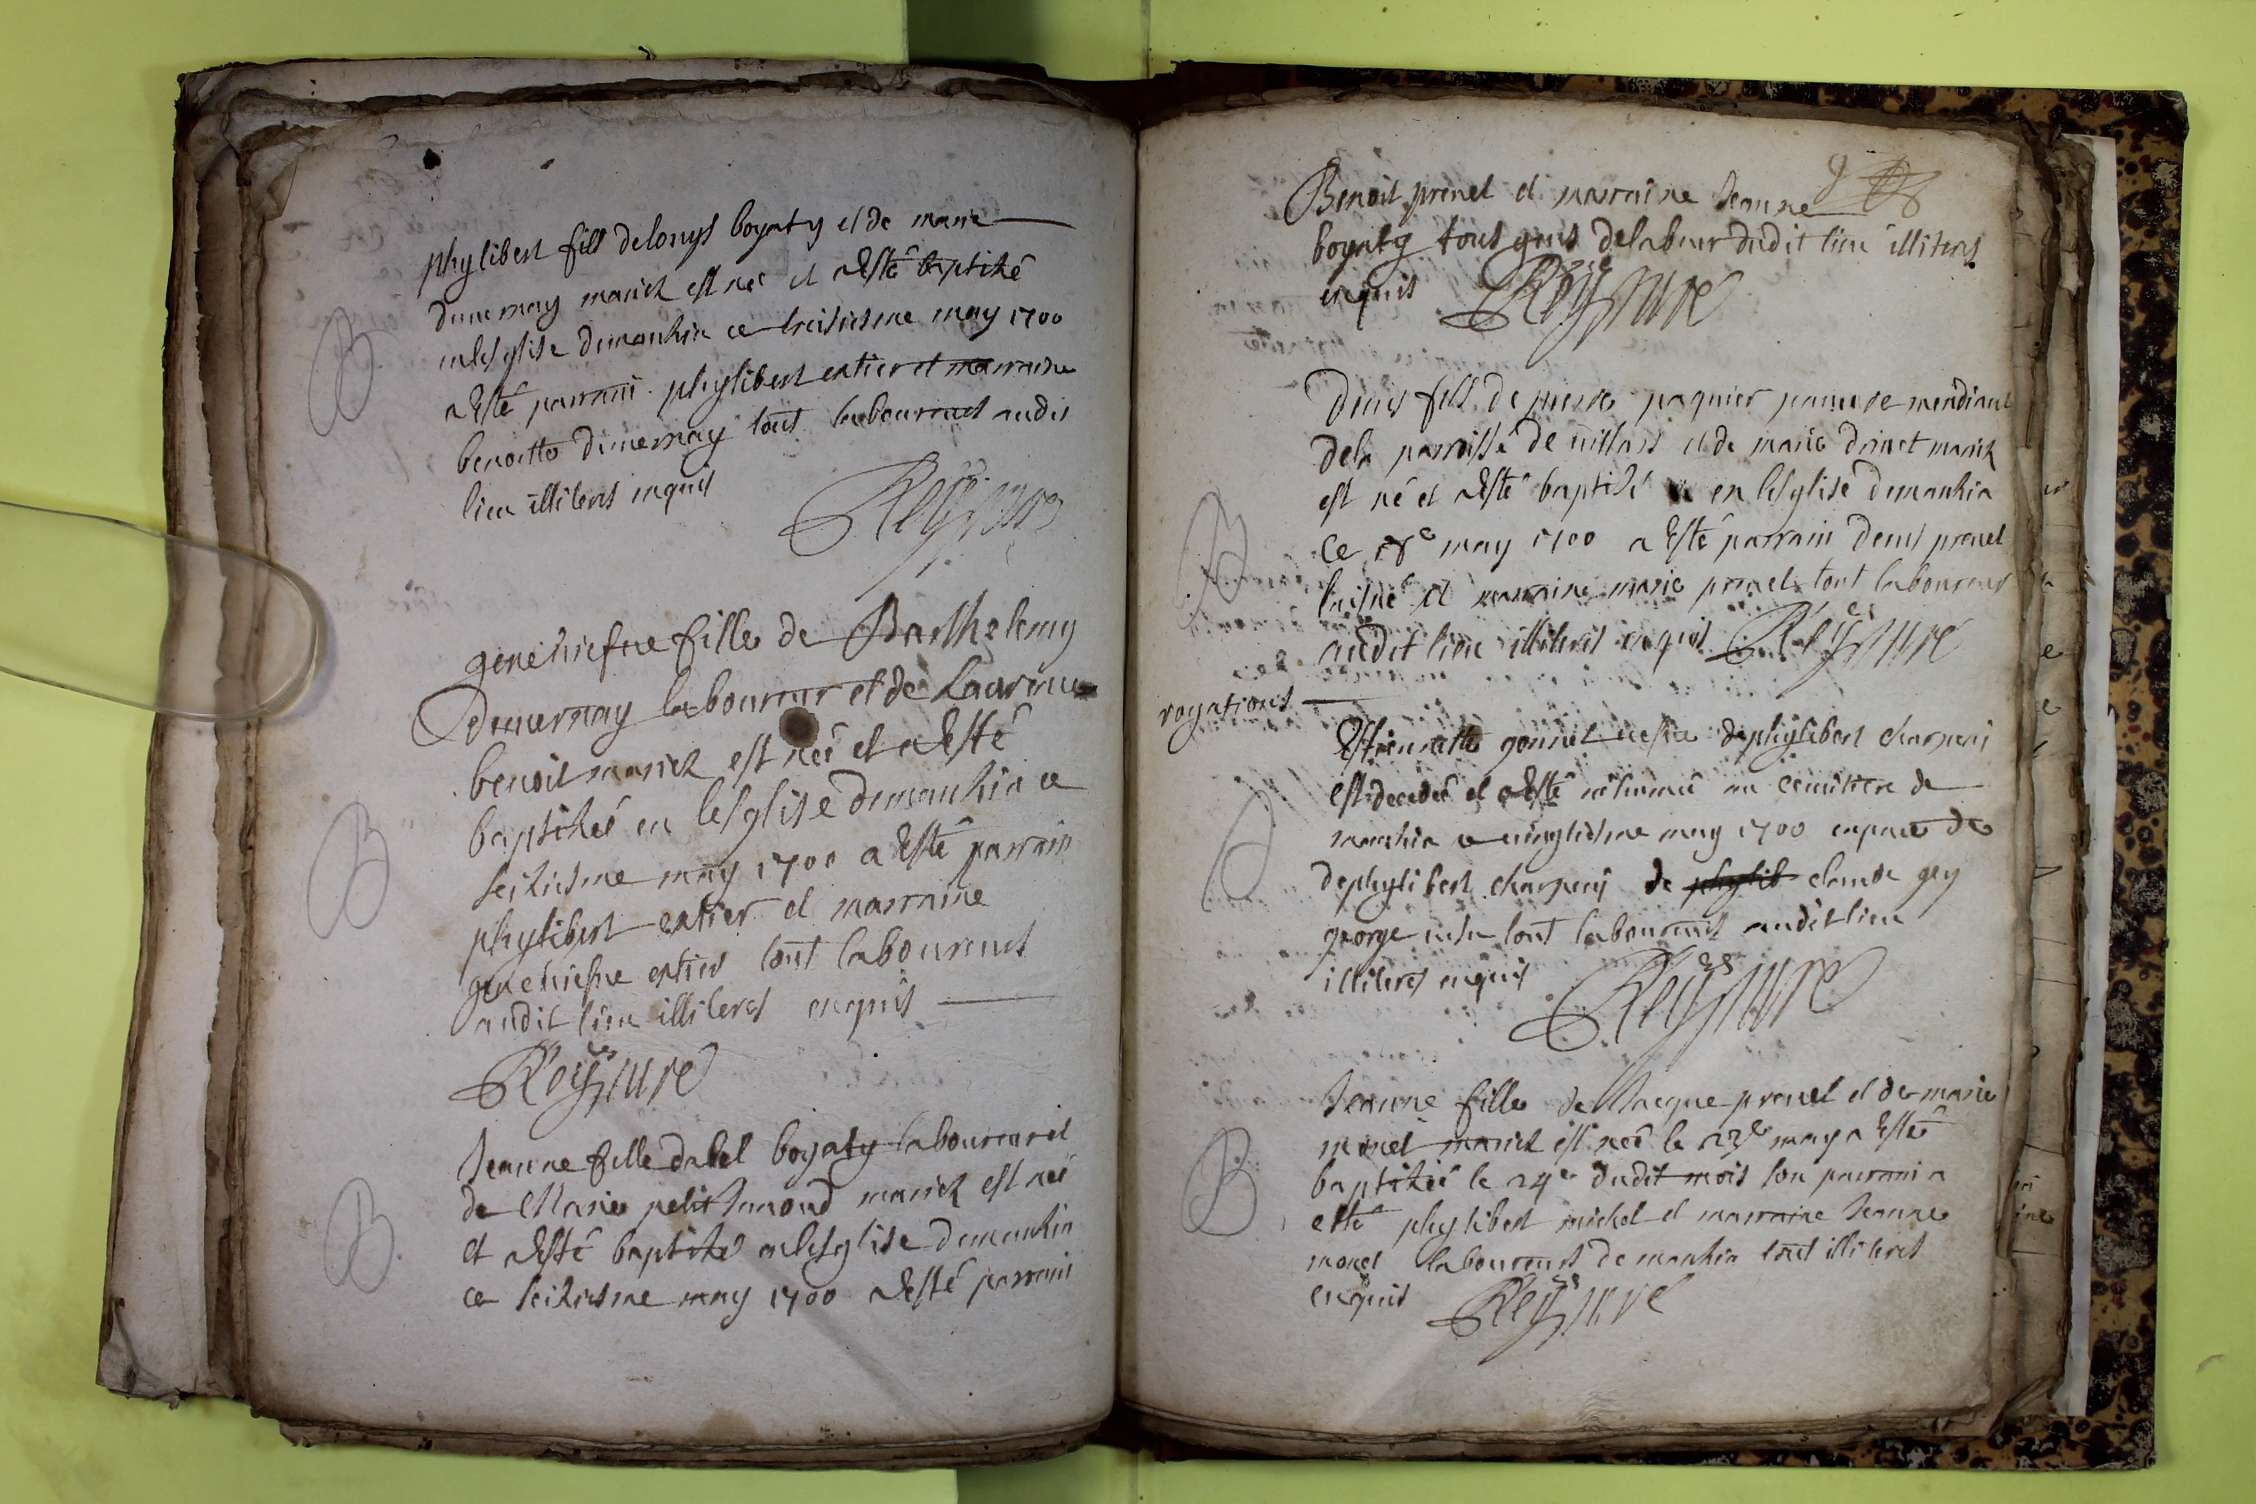 B
phylibert fills de lonys boyaty et de marie
dumernay mariez est née et a esté baptizé
en lesglise demanhia ce treisiesme may 1700
a esté parrain phylibert extier et marraine
benoitte dumernay tout laboureurs audit
lieu illiteres enquis
Reyssure
B
geneviefve fille de Barthelemy
dumernay laboureur et de Laurence
benoit mariez est née et a esté
baptizée en lesglise demanhia ce
seiziesme may 1700 a esté parrain
phylibert extier et marraine
geneviefve extier tout laboureurs
audit lieu illiteres enquis
Reyssure
B
Jeanne fille dabel boyaty laboureur et
de Marie petit Jamond mariez est née
et a esté baptizée en lesglise demanhia
ce seiziesme may 1700 a esté parrain
Benoit prenel et marraine Jeanne
boyaty tous gens de labeur dudit lieu illiteres
enquis Reyssure
B
Denis fils de pierre paquier pauvre mendiant
dela parroisse de et de marie drinet mariez
est né et a esté baptizé en lesglise demanhia
ce 18e may 1700 a esté parrain denis prenel
laisné et marraine marie prenel tout laboureurs
audit lieu illiteres enquis Reyssure
rogations
Estiennette gonnet vefve de phylibert charpuis
est decedée et a esté inhumée au cemitiere de
manhia ce vingtiesme may 1700 en pnce de
de phylibert charpuis de phylib claude gey
george tout laboureurs audit lieu
illiteres enquis Reyssure
B
Jeanne fille de Jacque prenel et de marie
morel mariez est née le 23e may a esté
baptizée le 24e dudit mois son parrain a
esté phylibert michel et marraine Jeanne
morel laboureurs de manhia tout illiteres
enquis Reyssure